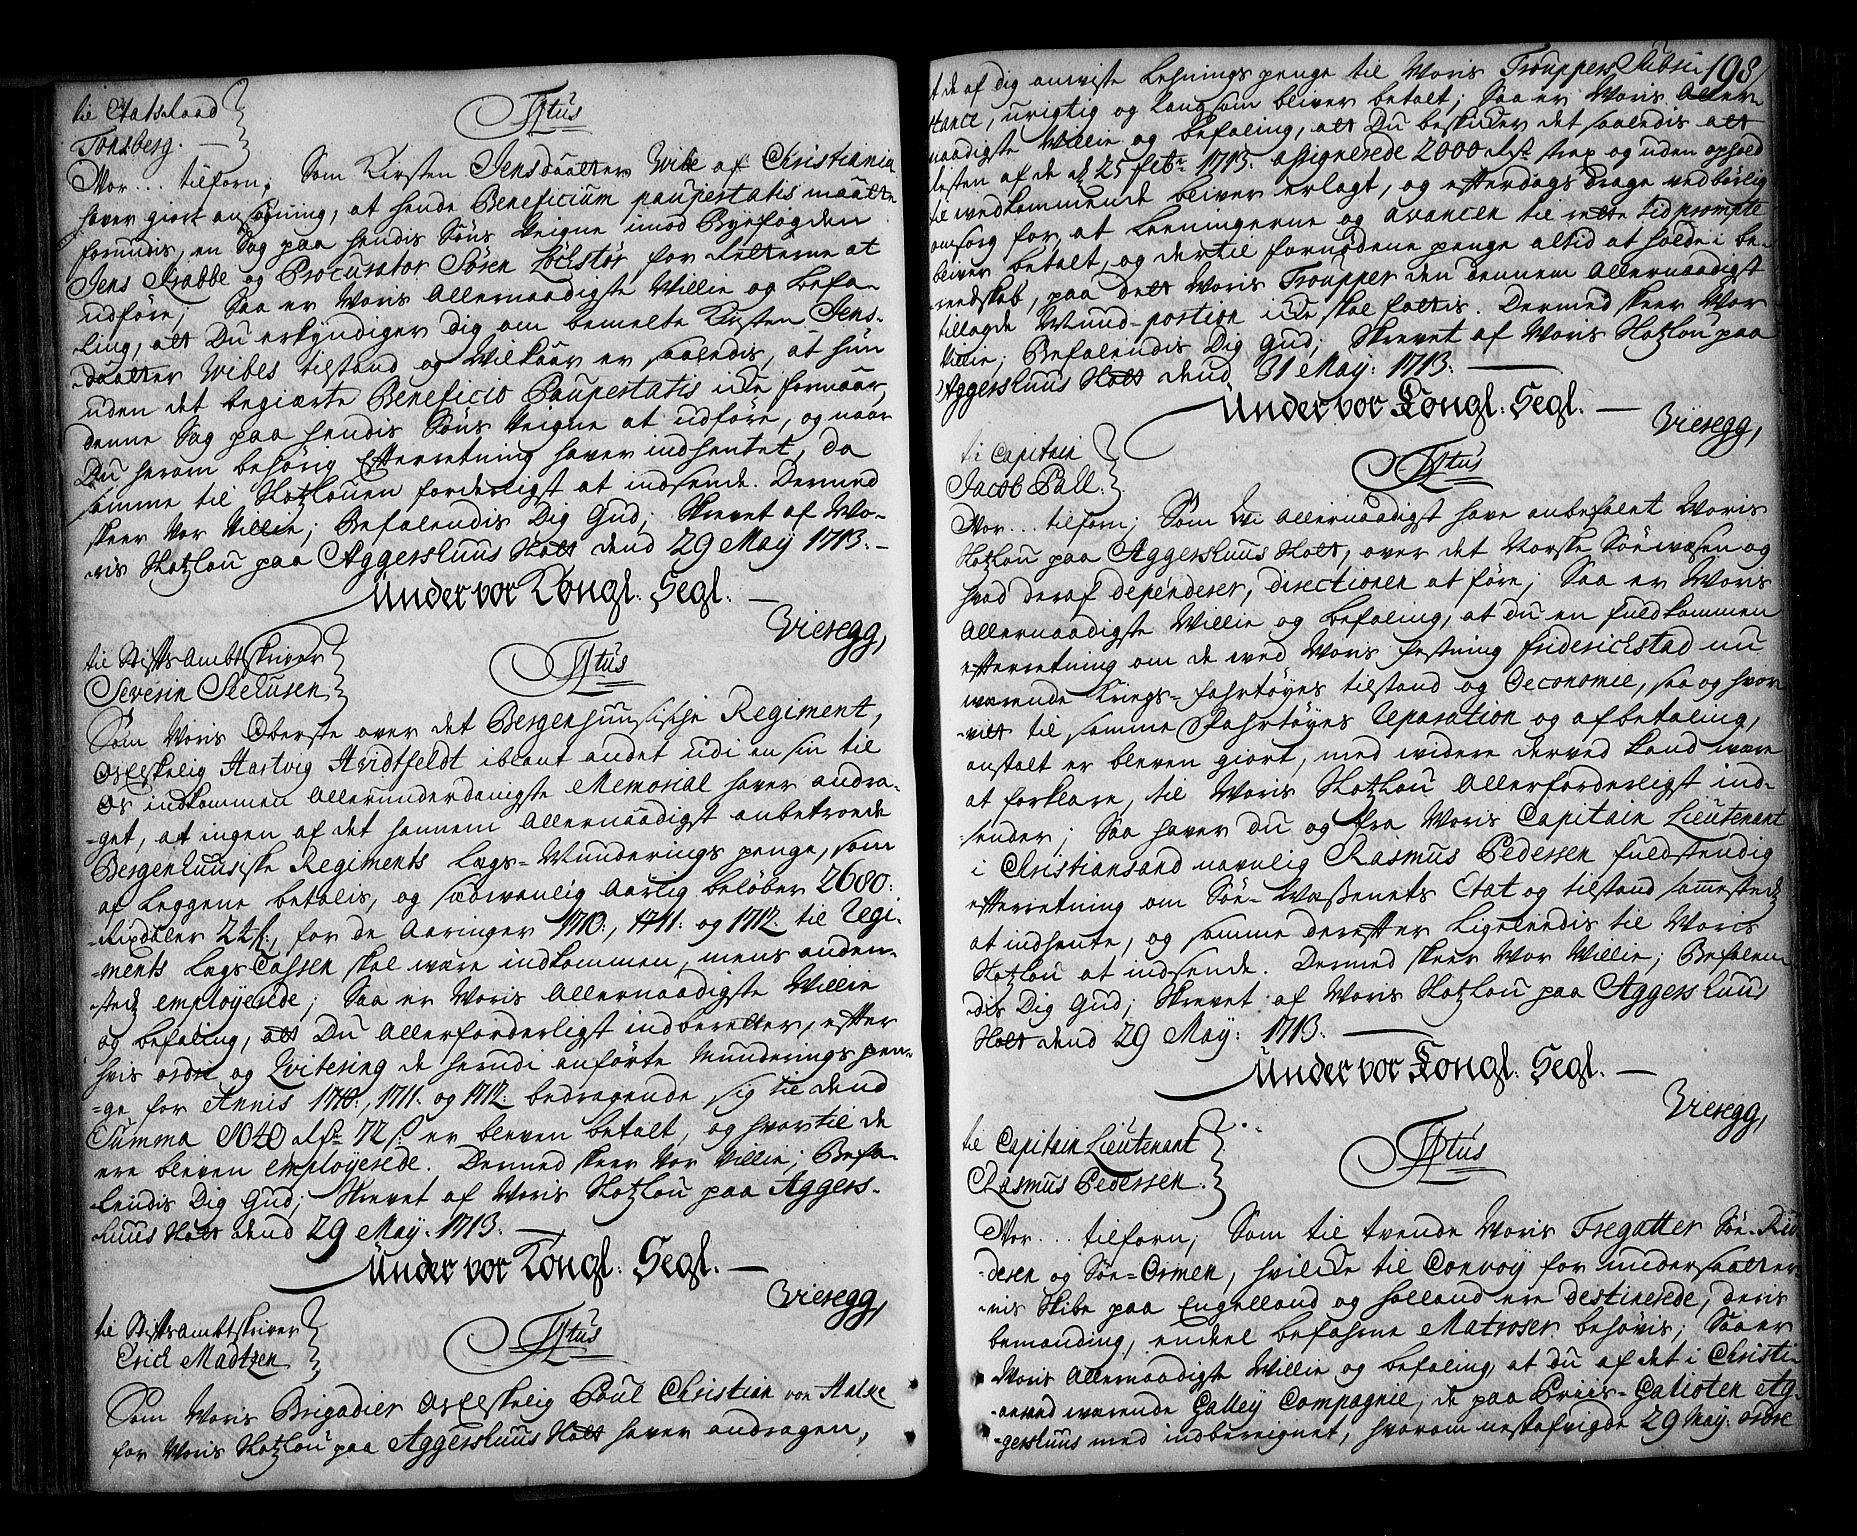 til Etatsraad
Tonsberg.
F4tus
Vor... tilforn; Som Kirsten Jensdaatter Wibe af Christiania
haver giort ansøgning, at hende Beneficium paupertatis maatte
forundis, en Sag paa hendis Søns Veigne imod Byefogden
Jens Krabbe og Procurator Søren for Retterne at
udføre; Saa er Voris Allernaadigste Villie og Befa-
ling, att Du erkyndiger dig om bemelte Kirsten Jens-
daatter Wibes tilstand og Vilkaar er saaledis, at hun
uden det begierte Beneficio Paupertatis icke formaar,
denne Sag paa hendis Søns Veigne at udføre, og naar
Du herom behørig Efterretning haver indhentet, da
samme til Slotzlouen forderligst at indsende. Dermed
skeer Vor Villie; Befalendis Dig Gud; Skrevet af Vo-
ris Slotzlou paa Aggershuus Slott dend 29 May 1713.
Under vor Kongl. Segl.
Vieregg,
til Stiftsambtskriver
Severin Seehusen
F4tus
Som Voris Oberste over det Bergenhuusische Regiment,
Os Elskelig Hartvig Hvidtfeldt iblant andet udi en sin til
Os indkommen Allerunderdanigste Memorial haver andra-
get, at ingen af det hannem Allernaadigst anbetroede
Bergenhuusiske Regiments Lægs-Munderings penge, som
af Leggene betalis, og sædvanlig Aarlig beløber 2680:
Rixdaler 24 s:, for de Aaringer 1710:, 1711: og 1712: til Regi-
ments Lægs Cassen skal være indkommen, mens anden-
stedz employerede; Saa er Voris Allernaadigste Villie
og befaling, att Du Allerforderligst indberetter, efter
hvis ordre og Qvitering de herudi anførte Munderings pen-
ge for Annis 1710:, 1711: og 1712: bedragende sig til dend
Summa 8040 Rd 72 s: er bleven betalt, og hvortil de
ere bleven employerede. Dermed skeer Vor Villie; Befa-
lendis Dig Gud; Skrevet af Voris Slotzlou paa Aggers-
huus Slott dend 29 May: 1713.
Under vor Kongl. Segl.
Vieregg,
til Stiftsambtskriver
Erich Madtzen
F4tus
Som Voris Brigadier Os Elskelig Poul Christian von
for Voris Slotzlou paa Aggershuus Slott haver andragen,
198
at de af dig anviste Lehnings penge til Voris Trouppers Subsi-
stance, urigtig og langsom bliver betalt; Saa er Voris Aller-
naadigste Villie og befaling, att Du beskicker det saaledis att
Resten af de d. 25 febr: 1713. assignerede 2000 Rd strax og uden ophold
til vedkommende bliver erlagt, og efterdags drage vedbørlig
omsorg for, at Leeningerne og avancen til rette tid prompte
bliver betalt, og dertil fornødene penge altid at holde i be-
redskab, paa dett Voris Troupper den dennem Allernaadigst
tillagde Mund-portion icke skal fattis. Dermed skeer Vor
Villie; Befalendis Dig Gud; Skrevet af Voris Slotzlou paa
Aggershuus Slott dend 31 May: 1713.
Under vor Kongl: Segl.
Vieregg,
til Capitain
Jacob Pall.
F4tus
Vor... tilforn; Som Vi Allernaadigst have anbefalet Voris
Slotzlou paa Aggershuus Slott, over det Norske Søevæsen og
hvad deraf dependerer, directionen at føre; Saa er Voris
Allernaadigste Villie og befaling, at du en fuldkommen
efterretning om de ved Voris festning friderichstad nu
værende Kriegs-fahrtøyes tilstand og Oeconomie, saa og hvor
vit til samme Fahrtøyes Reparation og afbetaling,
anstalt er bleven giort, med widere derved kand være
at forklare, til Voris Slotzlou Allerforderligst ind-
sender; Saa haver du og fra Voris Capitain Lieutenant
i Christiansand navnlig Rasmus Pedersen fuldstendig
efterretning om Søe-Waßenets Etat og tilstand sammestedz
at indhente, og samme derefter Ligeledis til Voris
Slotzlou at indsende. Dermed skeer Vor Villie; Befalen-
dis Dig Gud; Skrevet af Voris Slotzlou paa Aggershuus
Slott dend 29 May: 1713.
Under vor Kongl: Segl.
Vieregg,
til Capitain Lieutenant
Rasmus Pedersen.
F4tus
Vor... tilforn; Som til tvende Voris Fregatter Søe-Rid-
deren og Søe-Ormen, hvilcke til Convoy for undersaatter-
nis Skibe paa Engelland og Holland ere destinerede, deris
bemanding, endeel befahrne Matroser behøvis; Saa er
Voris Allernaadigste Villie og befaling, at du af det i Christi-
ansand værende Galley Compagnie, de paa Priis-Galioten Ag-
gershuus med indbereignet, hvorom nestafvigte 29 May: ordre